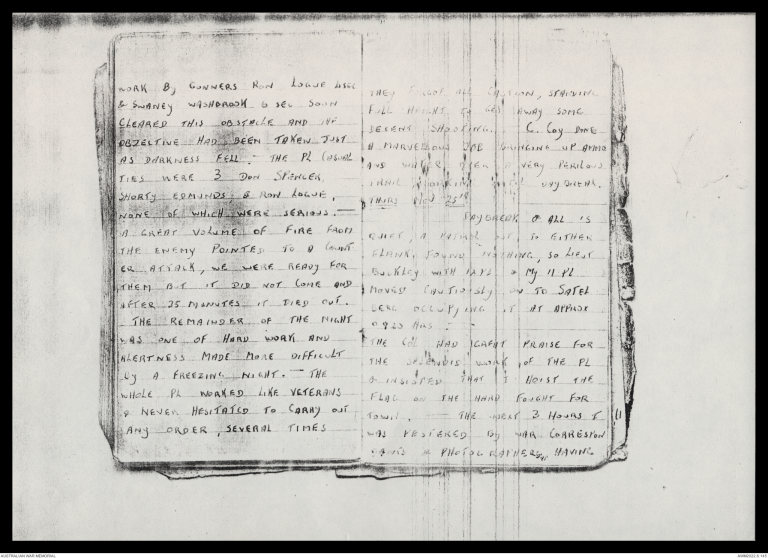 WORK By GUNNERS RON LOGUE 4SEC
& SWANEY WASHBROOK 6 SEC SOON
CLEARED THIS OBSTACLE AND THE
OBJECTIVE HAD BEEN TAKEN JUST
AS DARKNESS FELL. — THE PL CASUAL
TIES WERE 3 DON SPENCER,
SHORTY EDMUNDS & RON LOGUE,
NONE OF WHICH WERE SERIOUS. —
A GREAT VOLUME OF FIRE FROM
THE ENEMY POINTED TO A COUNT
ER ATTACK, WE WERE READY FOR
THEM BUT IT DID NOT COME AND
AFTER 25 MINUTES IT DIED OUT.
THE REMAINDER OF THE NIGHT
WAS ONE OF HARD WORK AND
ALERTNESS MADE MORE DIFFICULT
By A FREEZING NIGHT. — THE
WHOLE PL WORKED LIKE VETERANS
& NEVER HESITATED TO CARRY OUT
ANY ORDER, SEVERAL TIMES
THEY FORGOT ALL CAUTION, STANDING
FULL HEIGHT TO GET AWAY SOME
DECENT SHOOTING. C. Coy DONE
A MARVELLOUS JOB BRINGING UP AMMO
AND WATER OVER A VERY PERILOUS
TRAIL WORKING UNTIL DAYBREAK.
THURS NOV 25th
DAYBREAK & ALL IS
QUIET, A PATROL OUT, TO EITHER
FLANK FOUND NOTHING, SO LIEUT
BUCKLEY WITH & MY 11 PL
MOVED CAUTIOUSLY ON TO SATEL
BERG OCCUPYING IT AT APPROX
HRS. —
THE COL HAD GREAT PRAISE FOR
THE SPLENDID WORK OF THE PL
& INSISTED THAT I HOIST THE
FLAG ON THE HARD FOUGHT FOR
TOWN. — THE NEXT 3 HOURS I
WAS PESTERED By WAR CORRESPON
DANTS & PHOTOGRAPHERS, HAVING
AUSTRALIAN WAR MEMORIAL